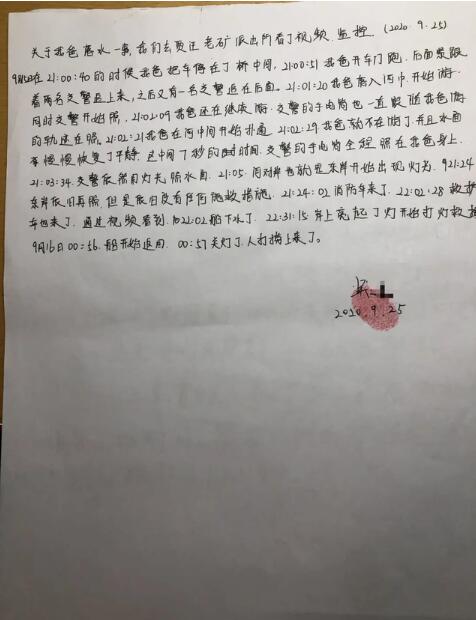 关于我爸落水一事,我们去贾汪老矿派出所看了视频监控. (2020.9.25)
9月15日在21:00:40的时候我爸把车停在了桥中间,21:00:51我爸开车门跑,后面紧跟
着两名交警追上来,之后又有一名交警追在后面。21:01:20我爸落入河中,开始游
同时交警开始照,21:02:09我爸还在继续游.交警的手电筒也一直跟随我爸游
的轨迹在照。21:02:21我爸在河中间开始扑通,21:02:29我爸就不在游了,并且水面
慢慢恢复了平静,这中间7秒的时间,交警的手电筒全程照在我爸身上.
21:03:34.交警依然用灯光照水面.21:05.河对岸也就是东岸开始出现灯光.921:24
东岸依旧再照,但是依旧没有任何施救措施,21:24:02消防车来了.22:02:28救护
车也来了.通过视频看到,22:02船下水了.22:31:15岸上亮起了灯开始打灯救援
9月16日00:56.船开始返回.00:57关灯了.人打捞上来了。
2020.9.25